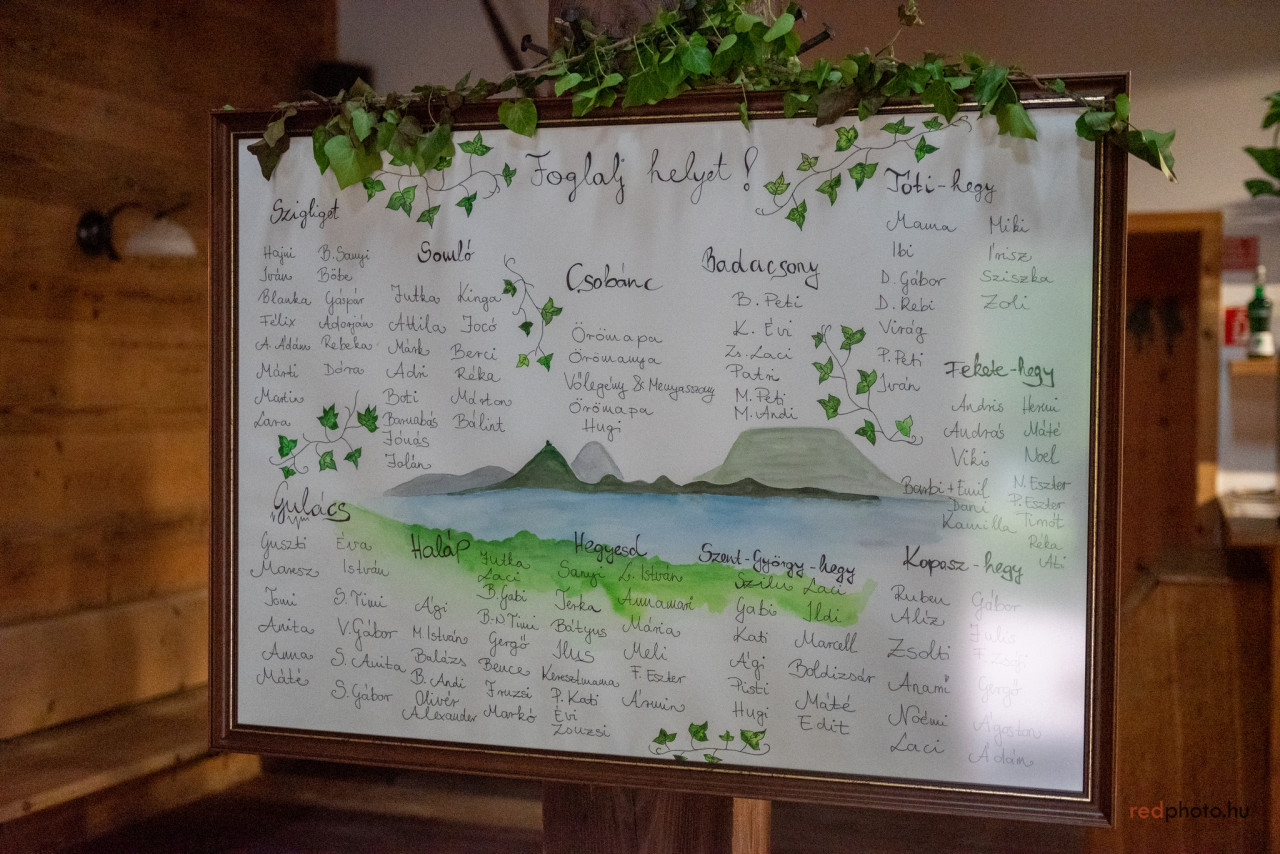 Foglalj helyet!
Szigliget
Hajni B. Sanyi
Iván Böbe
Blanka Gáspár
Félix Adorján
A. Ádám Rebeka
Márti Dóra
Martin
Lara
Somló
Jutka Kinga
Attila Jocó
Márk Berci
Adri Réka
Boti Márton
Barnabás Bálint
Jónás
Jolán
Csobánc
Örömapa
Örömanya
Vőlegény & Menyasszony
Örömapa
Hugi
Badacsony
B. Peti
K. Évi
Zs. Laci
Patri
M. Peti
M. Andi
Tóti-hegy
Mama Miki
Ibi Írisz
D. Gábor Sziszka
D. Rebi Zoli
Virág
P. Peti
Iván
Fekete-hegy
Andris Hermi
András Máté
Viki Noel
Bambi + Emil N. Eszter
Dani P. Eszter
Kamilla Timót
Réka
Abi
Gulács
Guszti Éva
Marsz István
Tomi S. Timi
Anita V. Gábor
Anna S. Anita
Máté S. Gábor
Haláp
Jutka
Laci
Ági B. Gabi
M. István B-N Timi
Balázs Gergő
B. Andi Bence
Olivér Fruzsi
Alexander Markó
Hegyesd
Sanyi L. István
Terka Annamari
Bátyus Mária
Ilus Meli
Keresztmama F. Eszter
P. Kati Ármin
Évi
Zsuzsi
Szent-György-hegy
Szilvi Laci
Gabi Ildi
Kati Marcell
Ági Boldizsár
Pisti Máté
Hugi Edit
Kopasz-hegy
Ruben Gábor
Aliz Juliz
Zsolti F. Zsófi
Anami Gergő
Noémi Ágoston
Laci Ádám
redphoto.hu